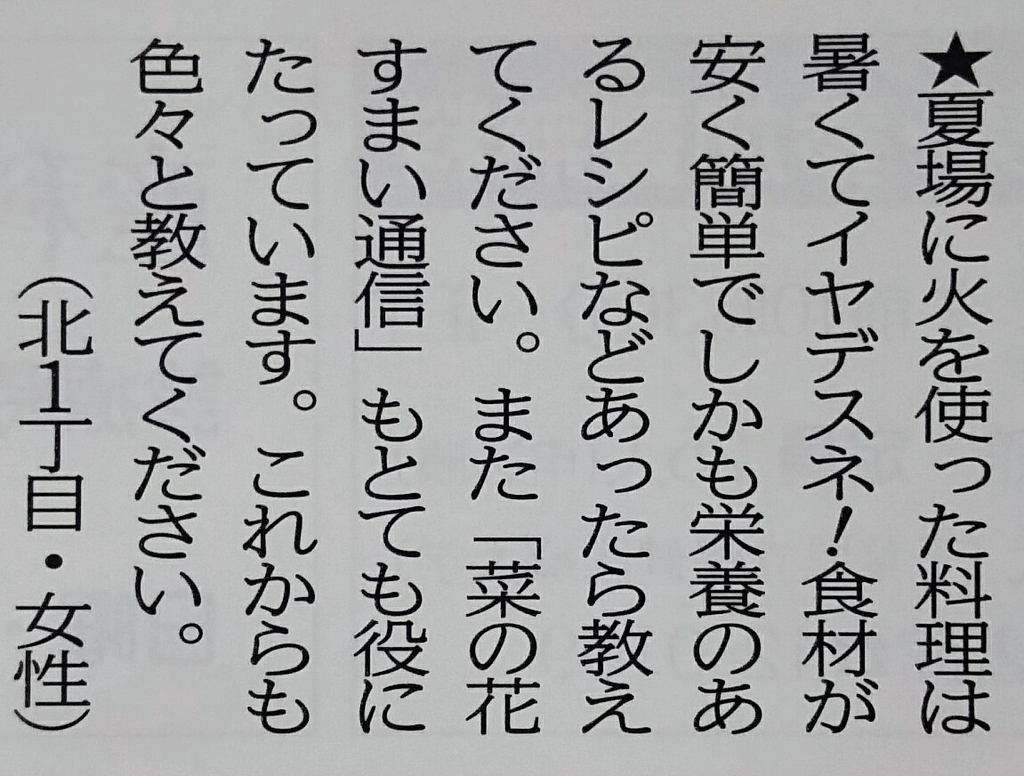 ★夏場に火を使った料理は
暑くてイヤデスネ！食材が
安く簡単でしかも栄養のあ
るレシピなどあったら教え
てください。また「菜の花
すまい通信」もとても役に
たっています。これからも
色々と教えてください。
（北1丁目・女性）